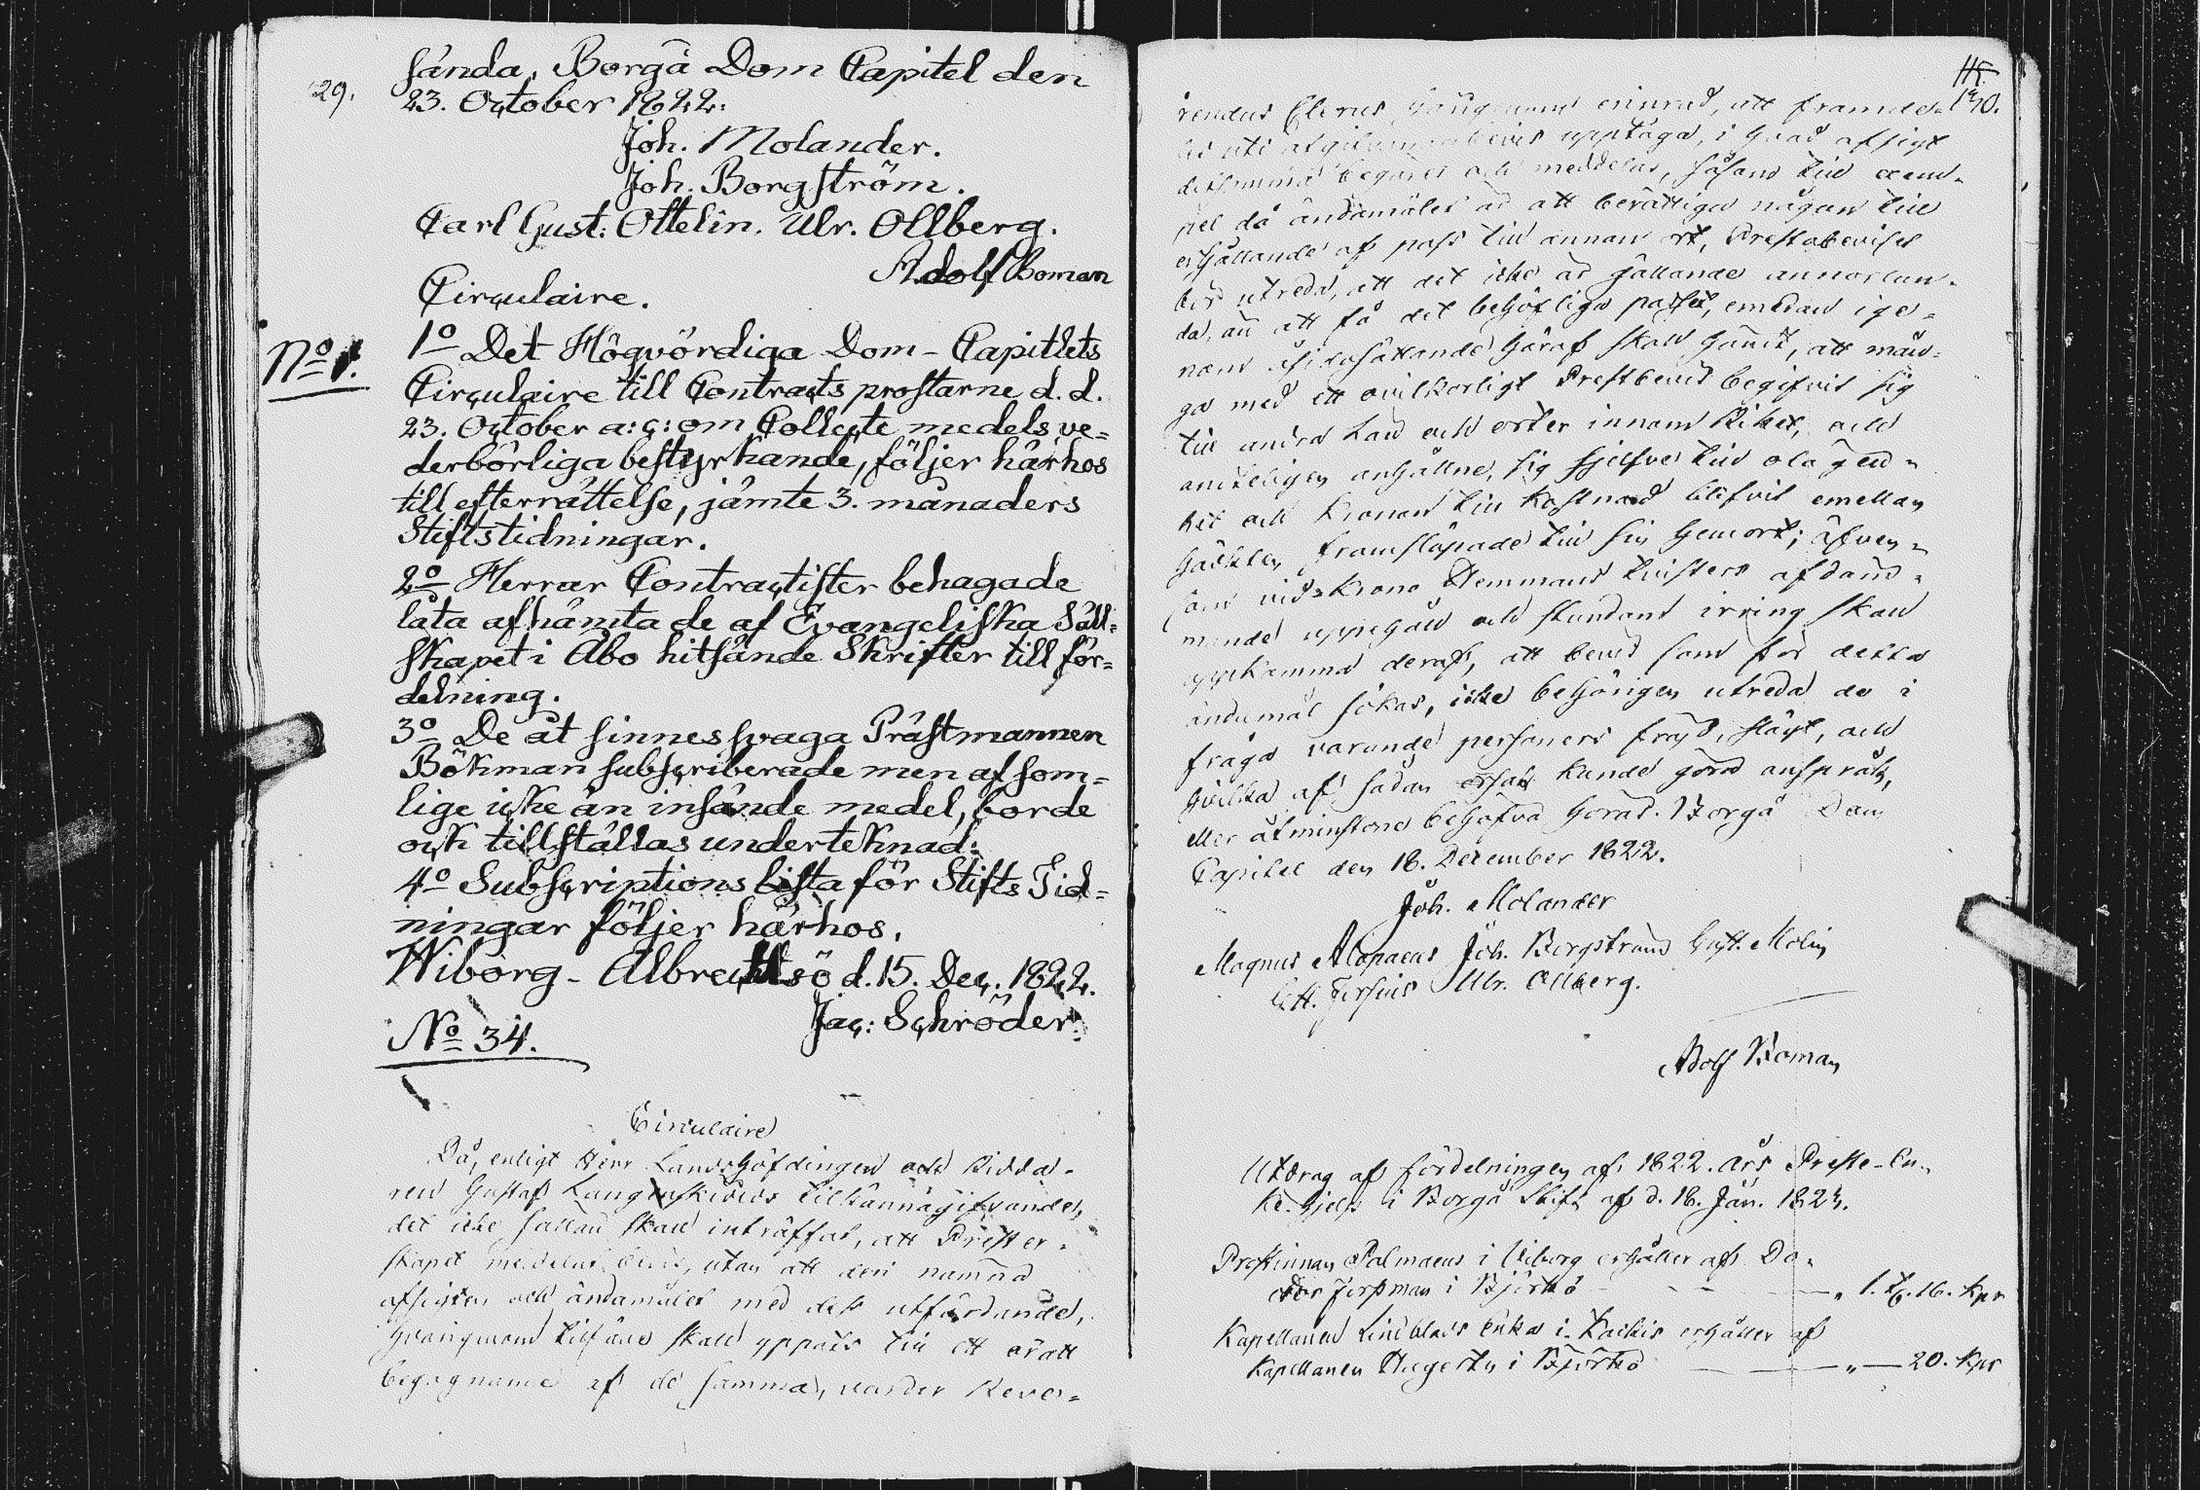 129.
sända, Borgå Dom Capitel den
23. October 1822.
Joh. Molander.
Joh. Borgström.
Carl Gust: Ottelin. Ulr. Ollberg.
Adolf Boman
Circulaire.
No 1.
1o Det Högvördiga Dom-Capitlets
Circulaire till Contracts prostarne d. d.
23. October a: c: om Collecte medels ve=
derbörliga bestyrkande, följer härhos
till efterrättelse, jämte 3. månaders
Stiftstidningar.
2o Herrar Contractister behagade
låta afhämta de af Evangeliska Säll=
skapet i Åbo hitsände Skrifter till för=
delning.
3o De åt sinnessvaga Prästmannen
Bökman subscriberade men af som=
lige icke än insände medel, borde
och tillställas underteknad:
4o Subscriptions lista för Stifts Tid=
ningar följer härhos.
Wiborg-Albrechtsö d. 15. Dec. 1822.
Jac: Schröder.
No 34.
Circulaire
Då, enligt Herr Landshöfdingen och Ridda-
ren Gustaf Langenskiölds tillkännagifvande,
det icke sällan skall inträffat, att Prester-
skapet meddelat bevis, utan att deri nämna
afsigten och ändamålet med dess utfärdande,
hvarigenom tilfälle skall yppats till ett orätt
begagnande af de samma, varder Reve=
115.
130.
rendus Clerus härigenom erinrad, att framde-
les uti afgifvande bevis upptaga, i hvad afsigt
detsamma begäres och meddelas, såsom till exem-
pel då ändamålet är att berättiga någon till
erhållande af pass till annan ort, Prestabeviset
bör utreda, att det icke är gällande annorlun-
da, än att få det behöfliga passet, emedan ige-
nom åsidosättande häraf skall händt, att mån-
ga med ett ovilkorligt Prestbevis begifvit sig
till andra Län och orter innom Riket, och
ändteligen anhållne, sig sjelfve till olägen-
het och Kronan till kostnad blifvit emellan
häkten framsläpade till sin hemort; äfven-
som vid Krono Hemmans tvisters afdöm-
mande uppehåll och stundom irring skall
uppkomma deraf, att bevis som för detta
ändamål sökas, icke behörigen utreda de i
fråga varande personers fräjd, slägt, och
hvilka af sådan orsak kunde göra anspråk,
eller åtminstone behöfva höras. Borgå Dom
Capitel den 18. December 1822.
Joh. Molander
Magnus Alopaeus Joh. Borgström Gust. Molin
Ulr. Ollberg.
Adolf Boman
Utdrag af fördelningen af 1822. års Preste-En-
ke-hjelp i Borgå Stift af d. 18. Jan. 1823.
Prostinnan Palmaeus i Viborg erhåller af Do-
ctor Forsman i Björkö - - - „ 1. R. 16. Kpr
Kapellanen Lindblads Enka i erhåller af
Kapellanen i Björkö — — „ — 20. Kpr